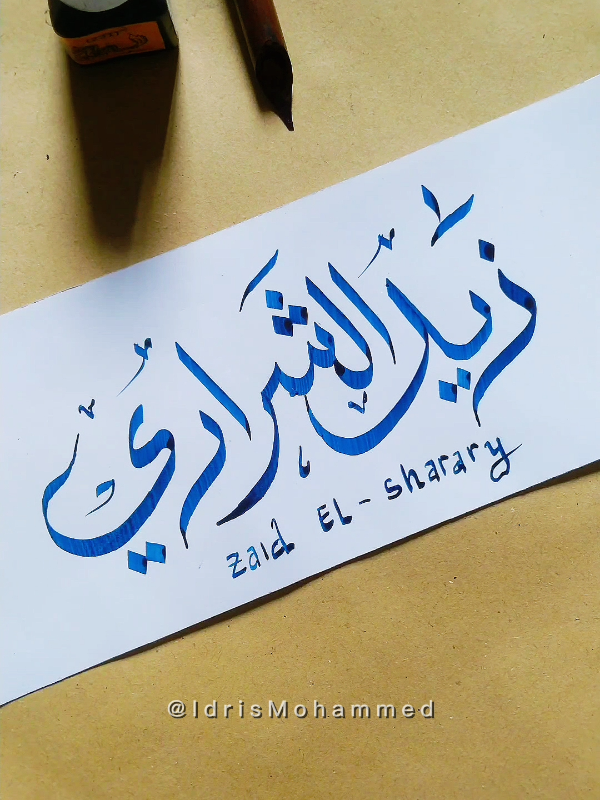 زيد الشراري
zaid EL-sharary
@IdrisMohammed